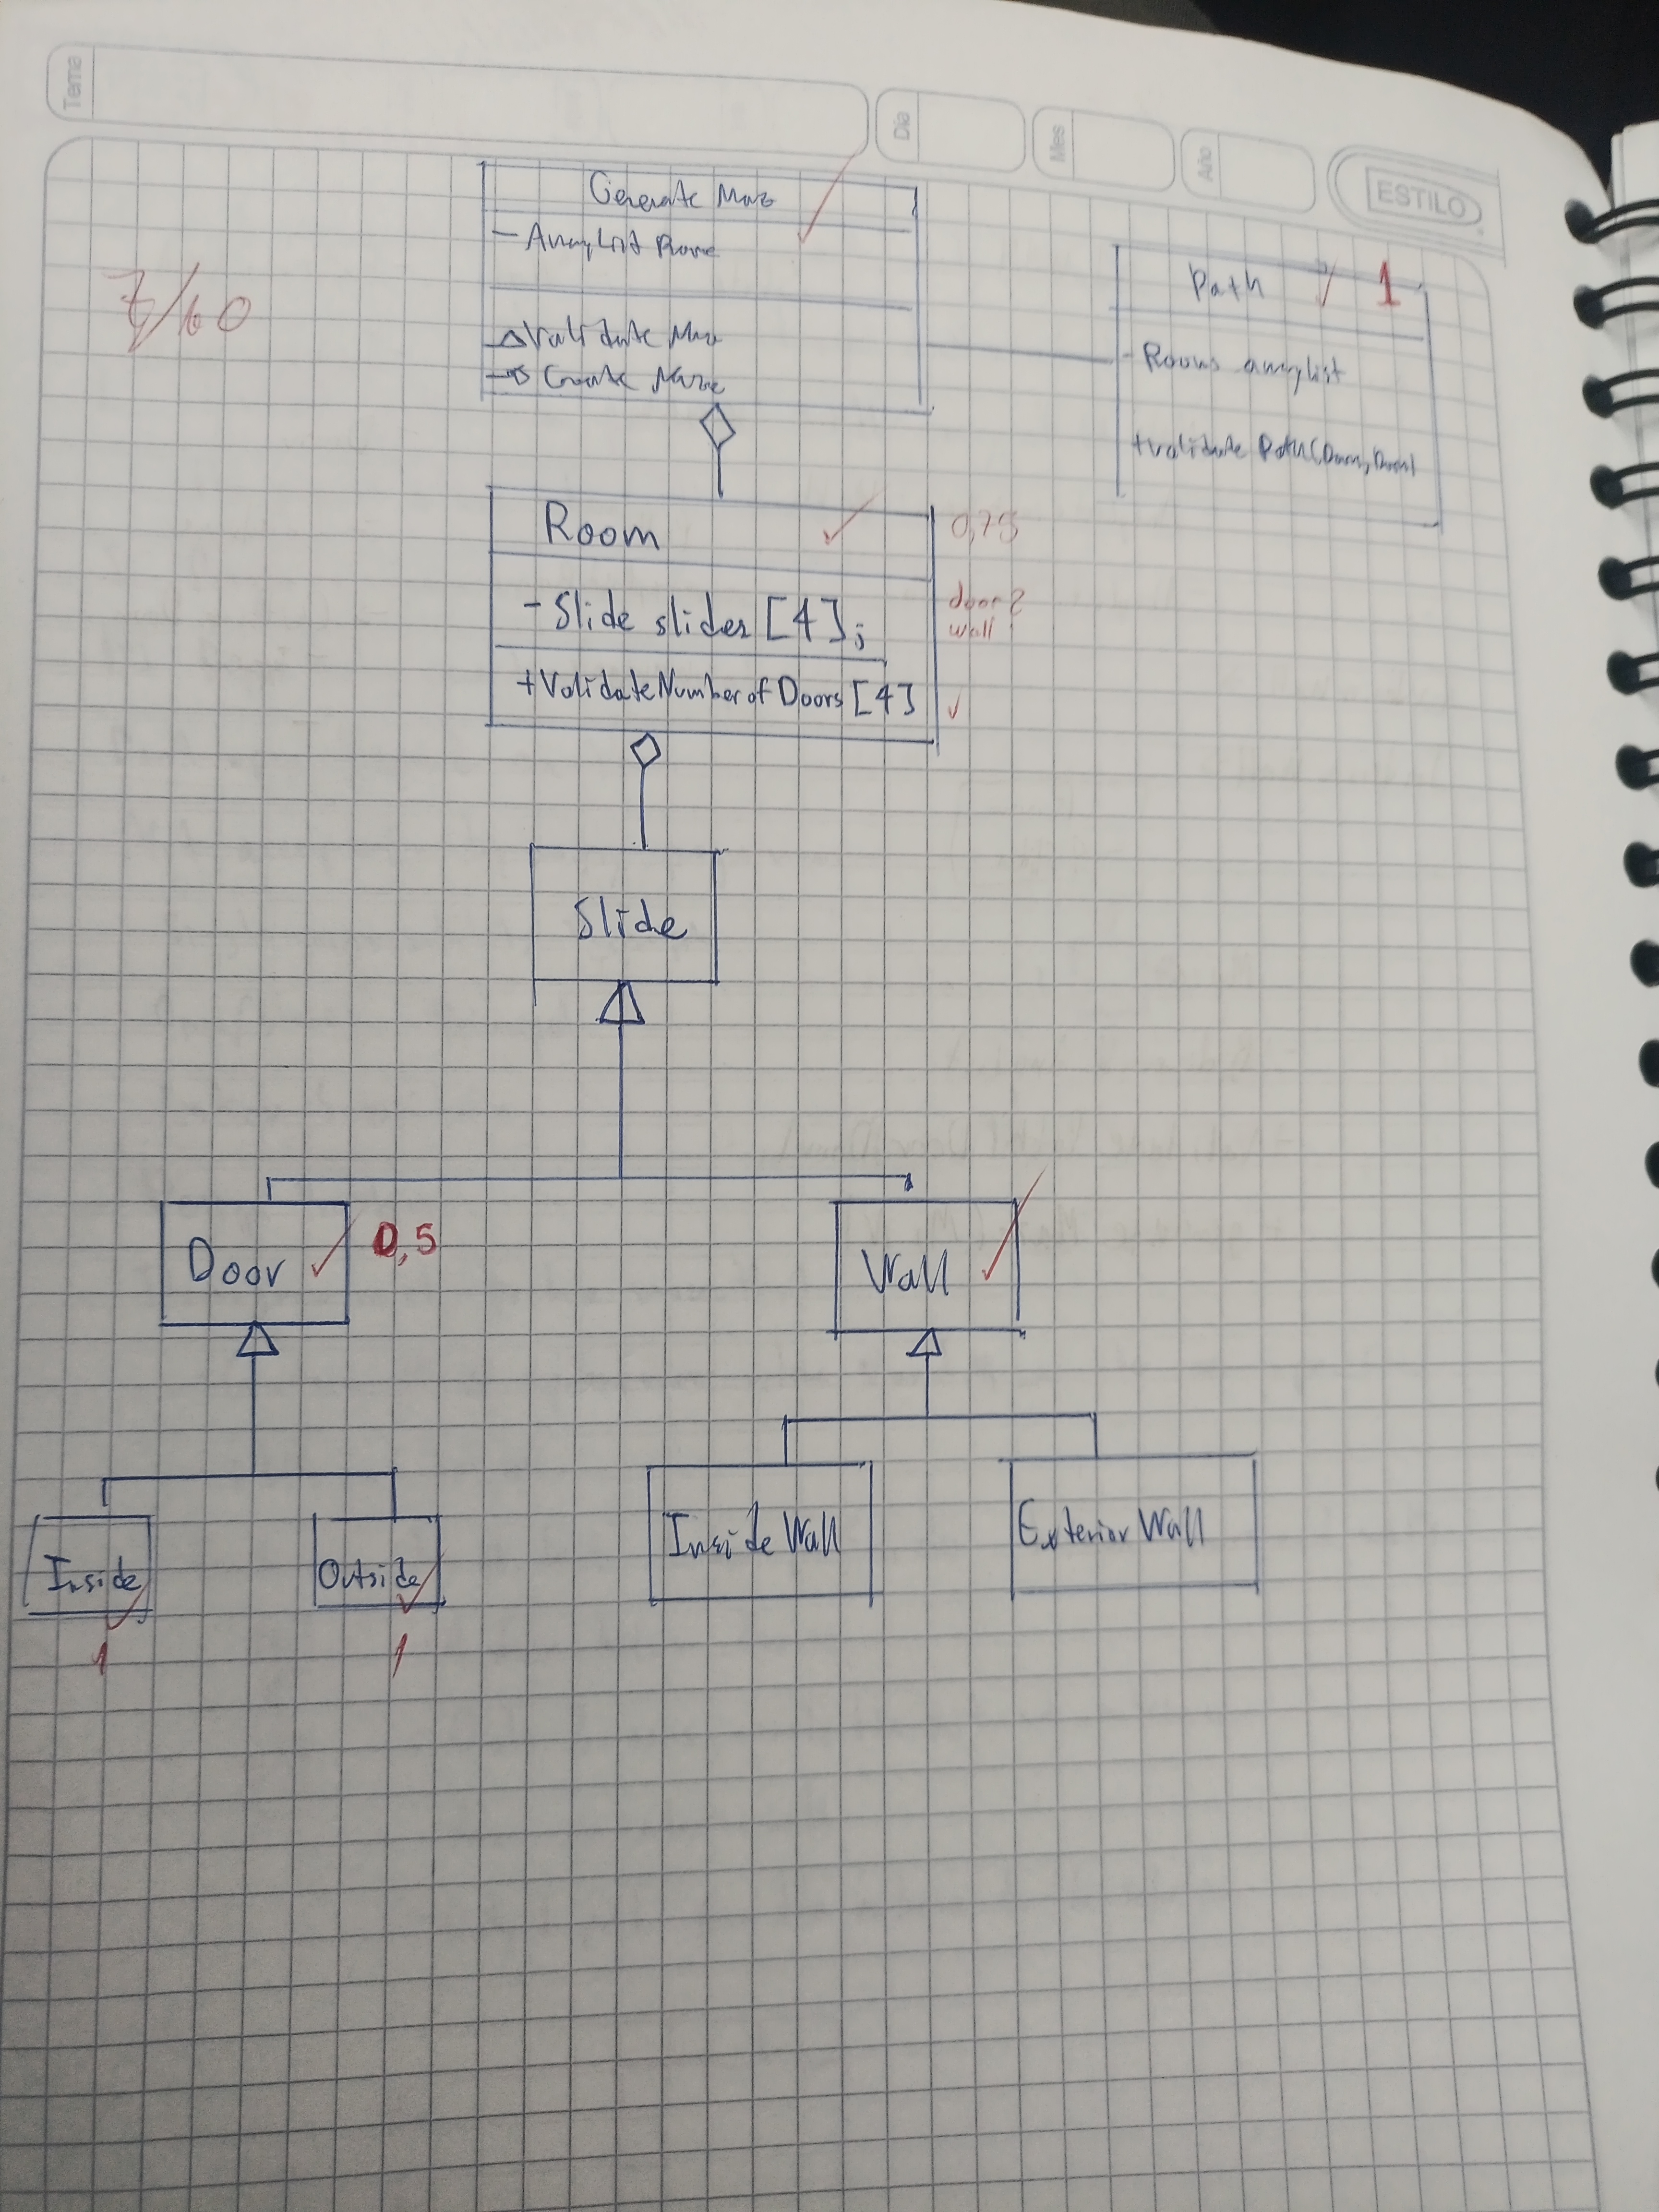 Tema
Día
Mes
Año
ESTILO
Generate Maze
- ArrayList Room
Validate Maze
Create Maze
7/10
Path 1
- Rooms arraylist
+validate Path(Door, Door)
Room 0,75
- Slide slider [4]; door?
wall
+ValidateNumberofDoors [4]
Slide
Door 0,5
Wall
Inside
Outside
Inside Wall
Exterior Wall
1
1